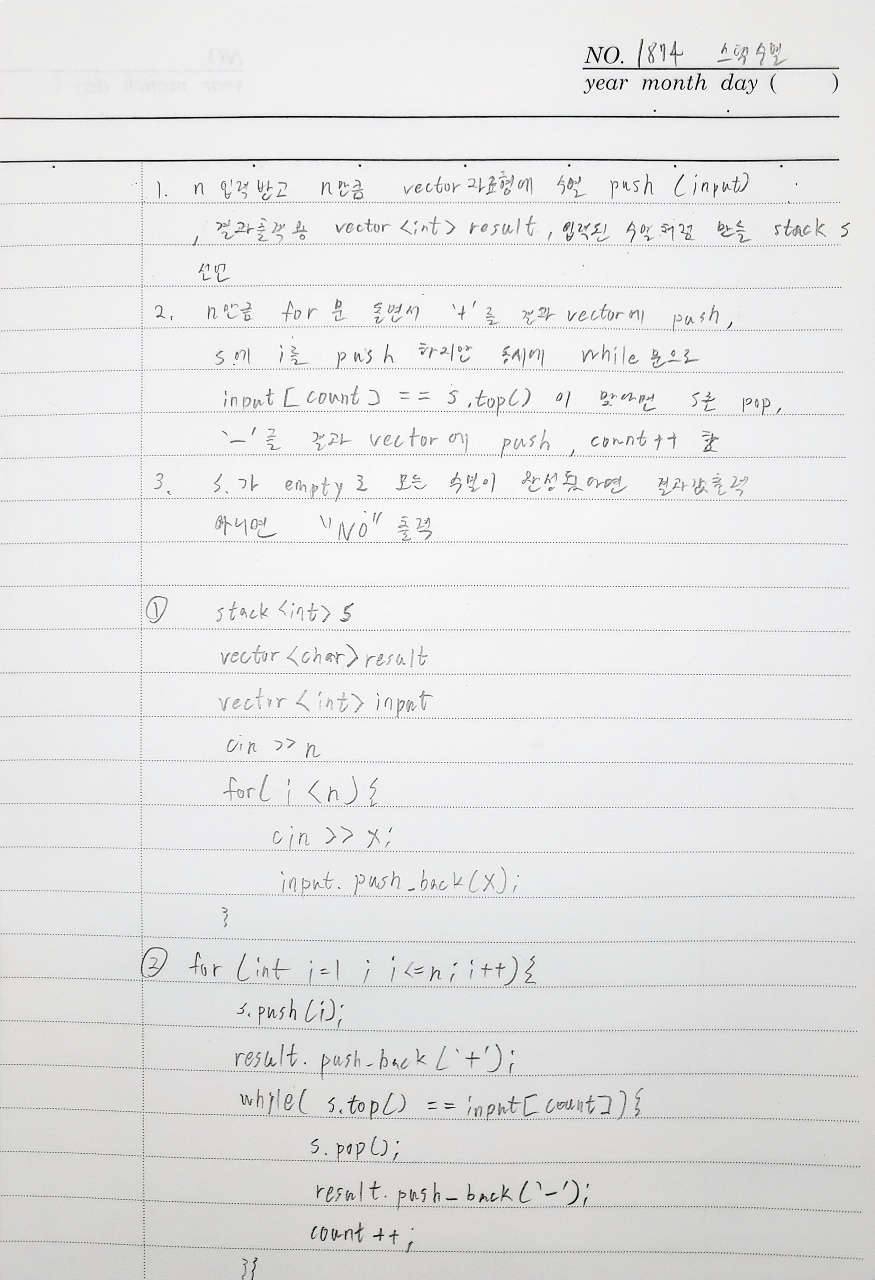 NO. 1874 스택수열
year month day ( )
1. n 입력받고 n만큼 vector자료형에 수열 push (input)
, 결과출력용 vector <int> result, 입력된 수열처럼 만들 stack s
선언
2. n만큼 for 문 돌면서 '+'를 결과 vector에 push,
s에 i를 push 하지만 동시에 while 문으로
input [count] == s.top() 이 맞다면 s를 pop,
'-'를 결과 vector에 push, count++ 함
3. s.가 empty로 모든 수열이 완성됬다면 결과값출력
아니면 "NO" 출력
① stack <int> s
vector <char> result
vector <int> input
cin >> n
for( i < n) {
cin >> x;
input. push_back(x);
}
② for (int i=1 ; i<=n; i++) {
s.push(i);
result. push_back ('+');
while( s.top() == input[count]) {
s.pop();
result. push_back ('-');
count ++;
}}